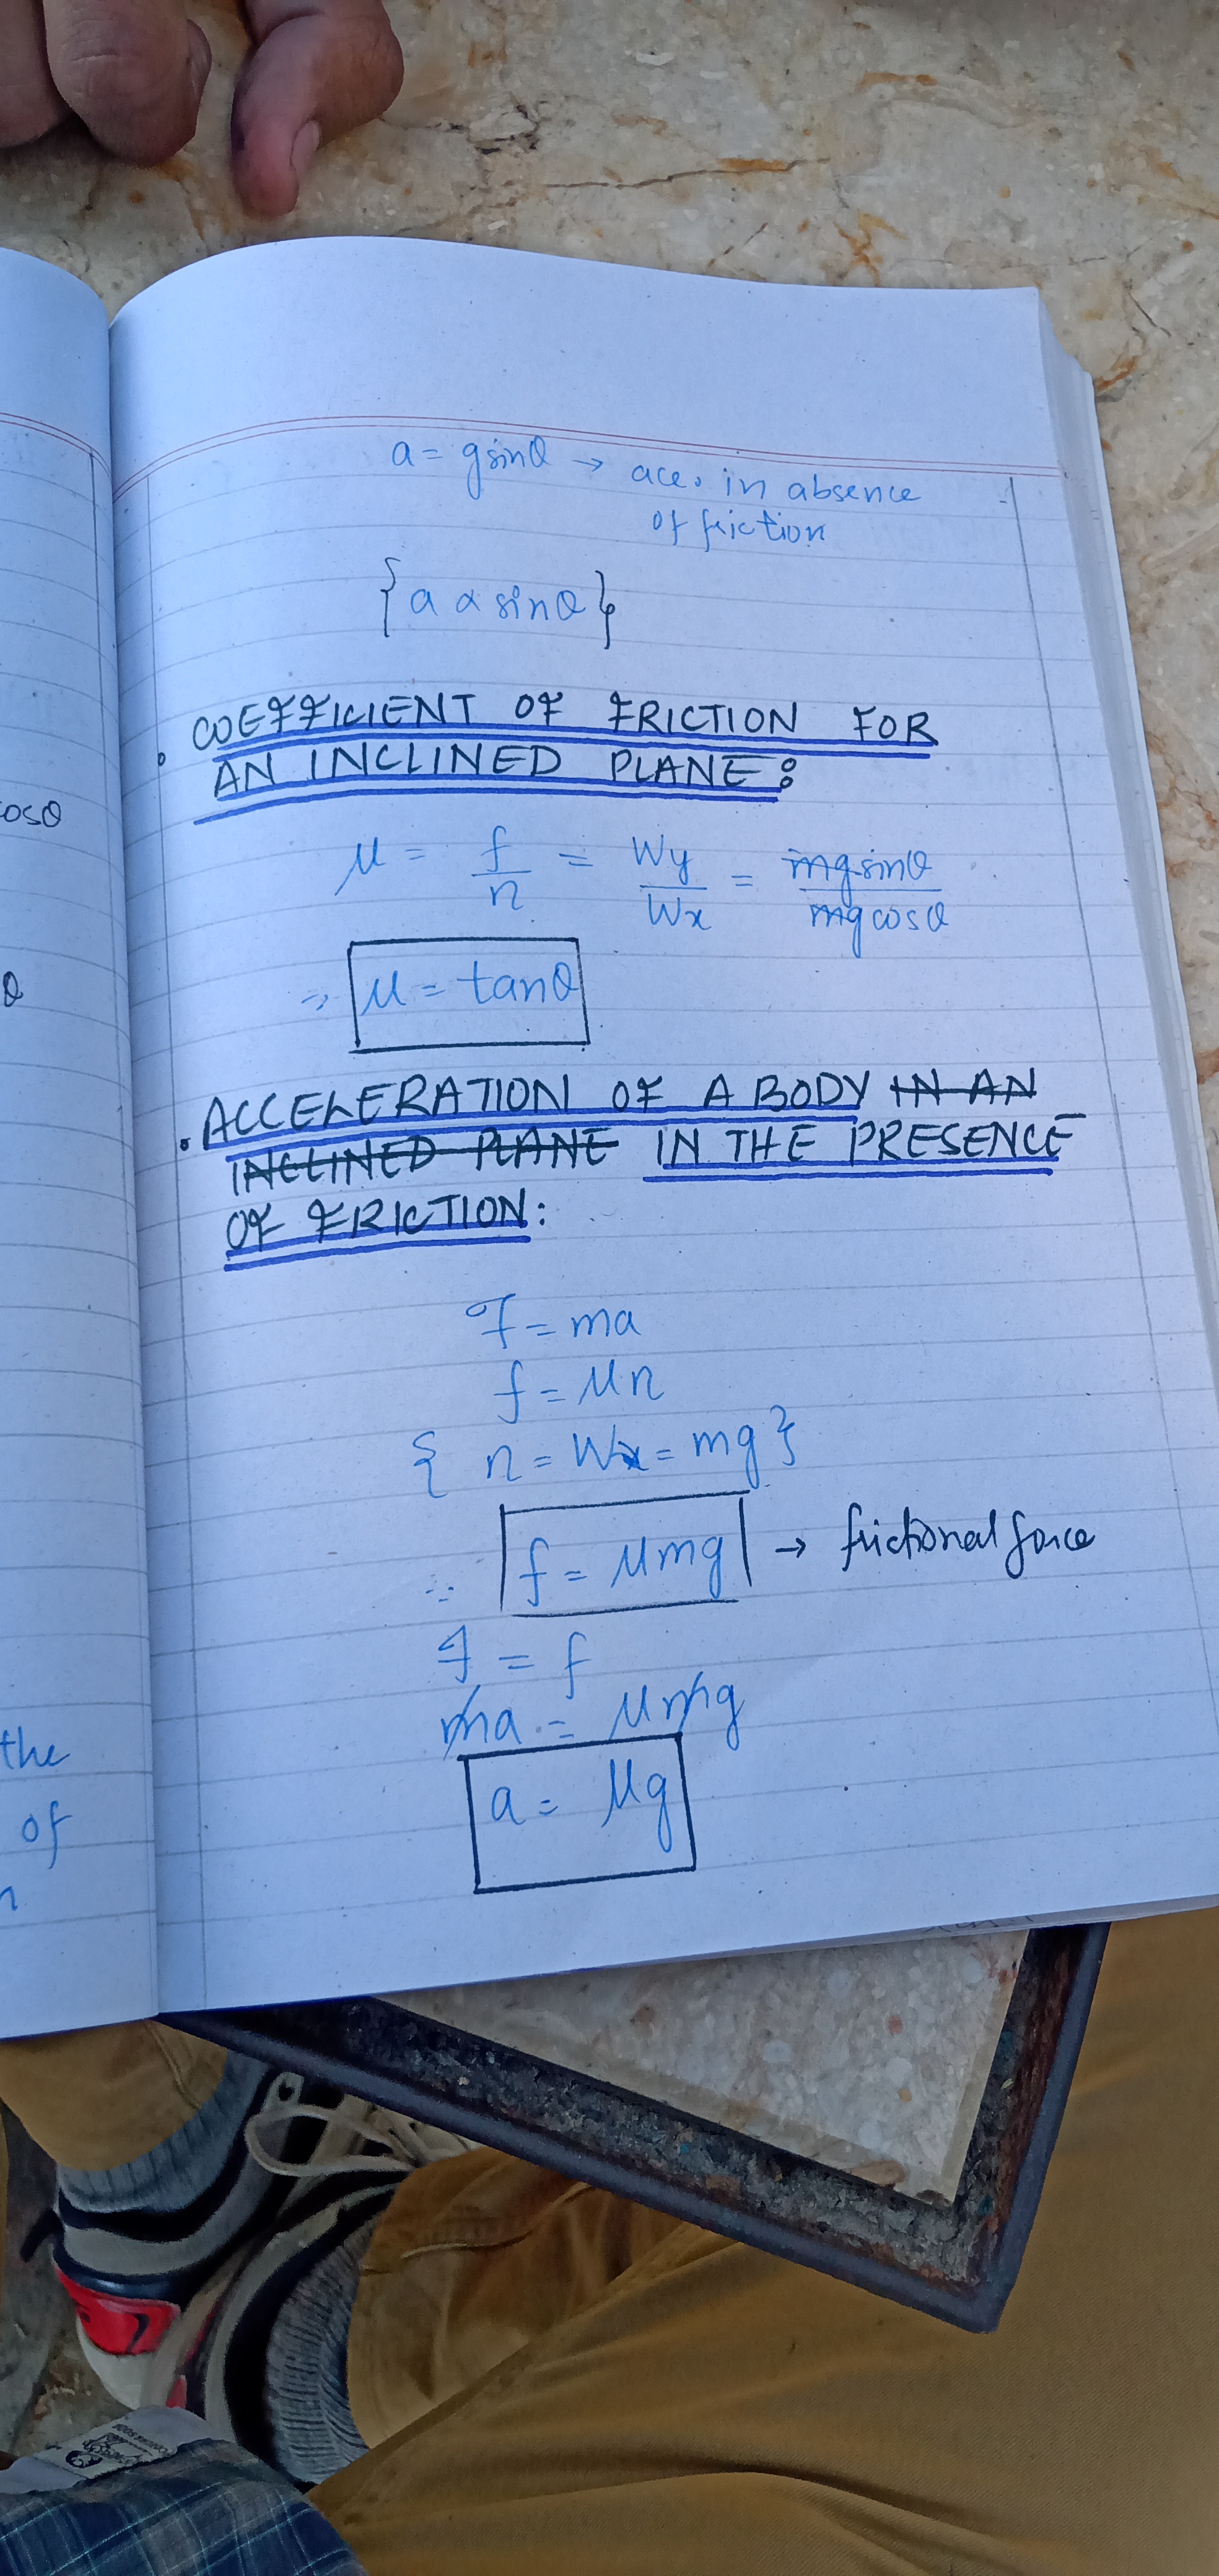 a = g sinθ → acc. in absence
of friction
{a α sinθ}
• COEFFICIENT OF FRICTION FOR
AN INCLINED PLANE:
μ = f/n = Wy/Wx = mg sinθ/mg cosθ
⇒ μ = tanθ
• ACCELERATION OF A BODY IN AN
INCLINED PLANE IN THE PRESENCE
OF FRICTION:
F = ma
f = μn
{ n = Wx = mg }
∴ f = μmg → frictional force
F = f
ma = μmg
a = μg
osθ
θ
the
of